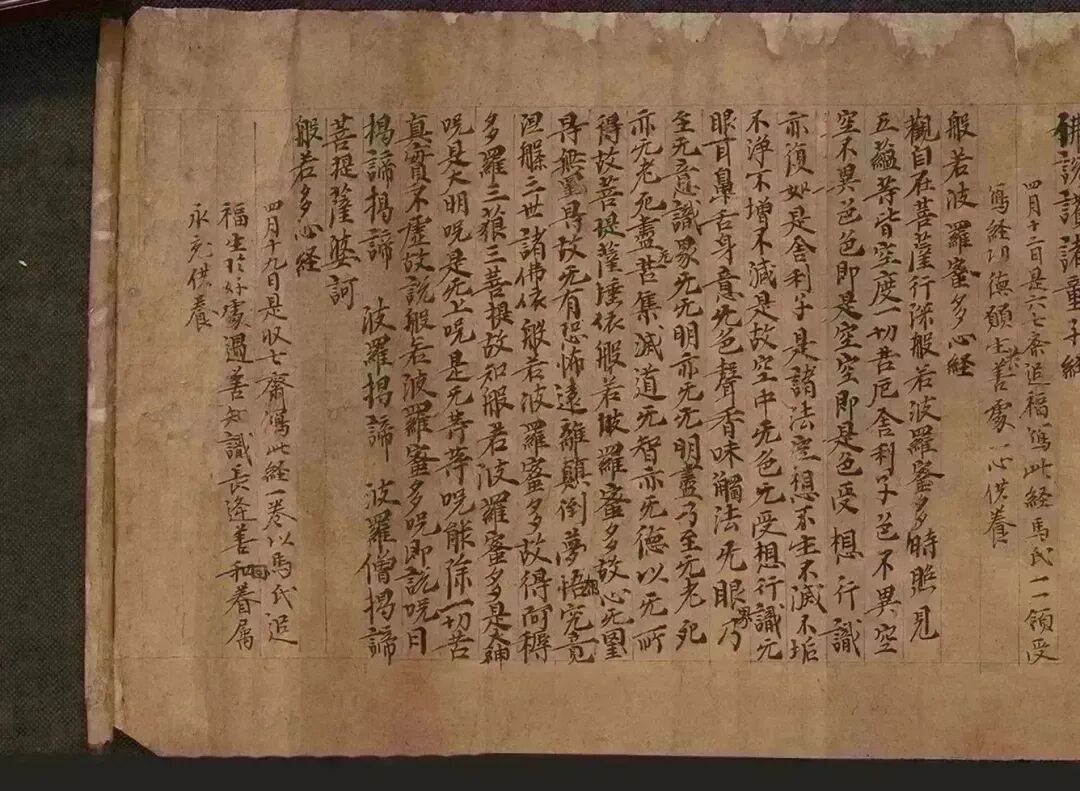 佛說護諸童子経
四月十二日是六七斋追福寫此経馬氏一一領受
寫経功德願生善處一心供養
般若波羅蜜多心経
觀自在菩薩行深般若波羅蜜多時照見
五蘊等皆空度一切苦厄舍利子色不異空
空不異色色即是空空即是色受想行識
亦復如是舍利子是諸法空想不生不滅不垢
不淨不增不減是故空中无色无受想行識无
眼耳鼻舌身意无色聲香味觸法无眼界乃
至无意識界无无明亦无无明盡乃至无老死
亦无老死盡无苦集滅道无智亦无德以无所
得故菩提薩埵依般若波羅蜜多故心无罣
㝵無罣㝵故无有恐怖遠離顛倒夢想究竟
涅槃三世諸佛依般若波羅蜜多故得阿耨
多羅三藐三菩提故知般若波羅蜜多是大神
呪是大明呪是无上呪是无等等呪能除一切苦
真實不虛故說般若波羅蜜多呪即説呪曰
揭諦揭諦 波羅揭諦 波羅僧揭諦
菩提薩婆訶
般若多心経
四月十九日是収七齋寫此経一卷以馬氏追
福生於好處遇善知識長逢善因眷属
永充供養